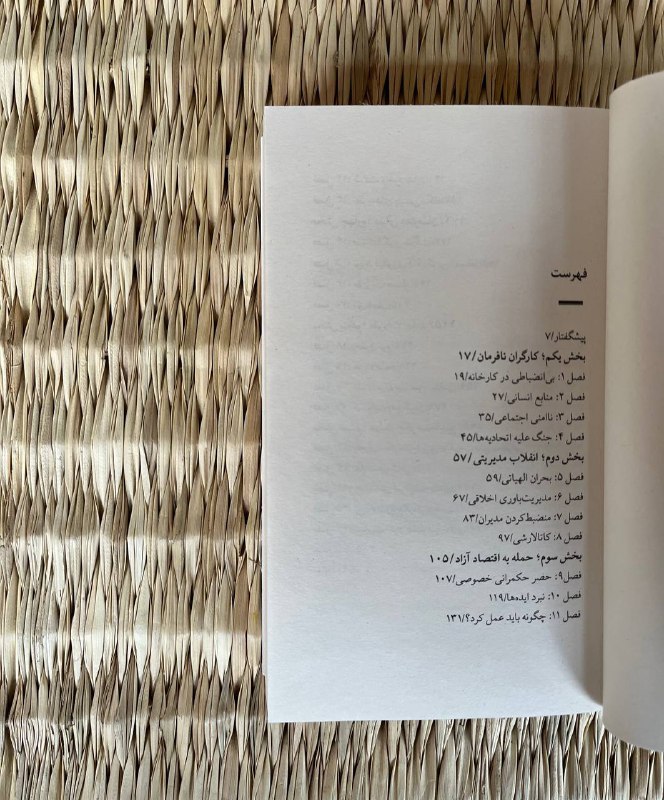 فهرست
پیشگفتار/۷
بخش یکم؛ کارگران نافرمان/۱۷
فصل ۱: بی‌انضباطی در کارخانه/۱۹
فصل ۲: منابع انسانی/۲۷
فصل ۳: ناامنی اجتماعی/۳۵
فصل ۴: جنگ علیه اتحادیه‌ها/۴۵
بخش دوم؛ انقلاب مدیریتی/۵۷
فصل ۵: بحران الهیاتی/۵۹
فصل ۶: مدیریت‌باوری اخلاقی/۶۷
فصل ۷: منضبط‌کردن مدیران/۸۳
فصل ۸: کاتالارشی/۹۷
بخش سوم؛ حمله به اقتصاد آزاد/۱۰۵
فصل۹: حصر حکمرانی خصوصی/۱۰۷
فصل ۱۰: نبرد ایده‌ها/۱۱۹
فصل ۱۱: چگونه باید عمل کرد؟/۱۳۱